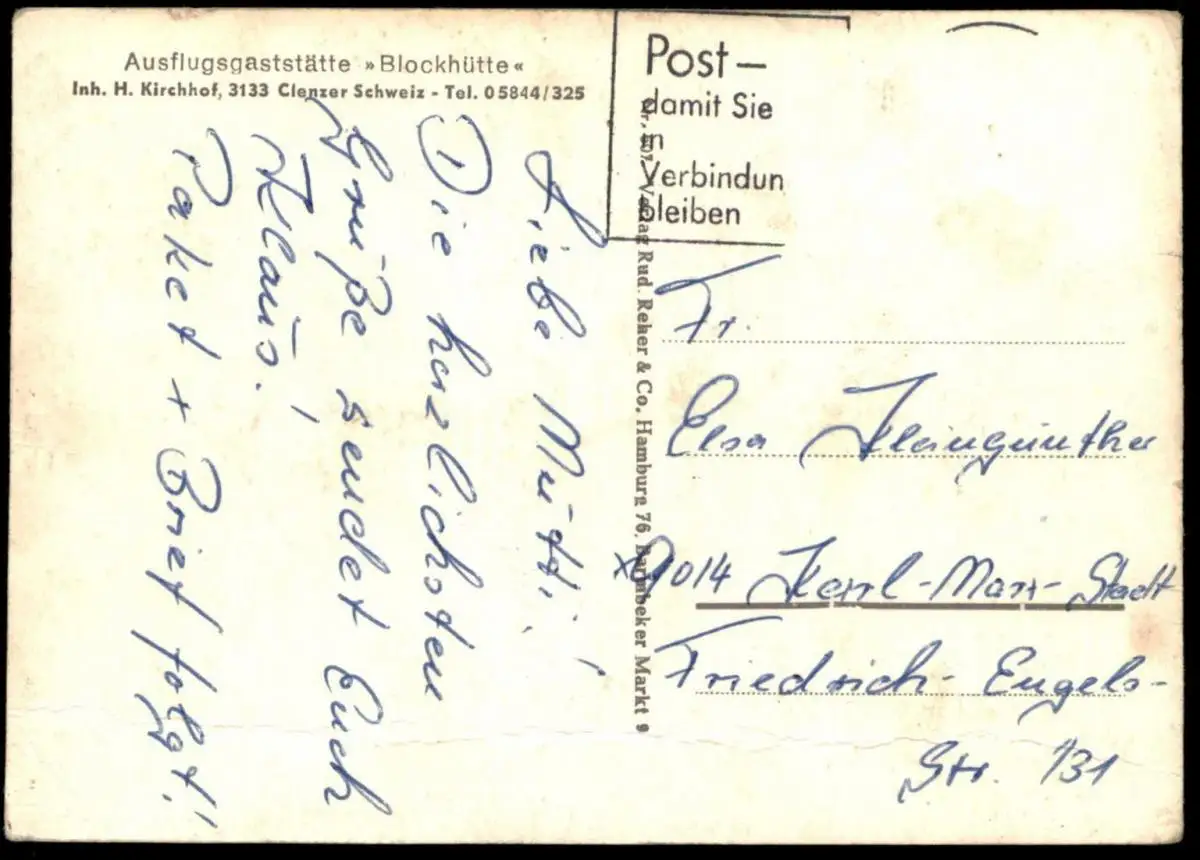 Ausflugsgaststätte »Blockhütte«
Inh. H. Kirchhof, 3133 Clenzer Schweiz - Tel. 05844/325
Liebe Mutti!
Die herzlichsten
Grüße sendet Euch
Klaus!
Paket + Brief folgt!
Verlag Rud. Reher & Co. Hamburg 76. Barmbeker Markt 9
Post—
damit Sie
in
Verbindun
bleiben
Fr.
Elsa Kleingünther
X9014 Karl-Marx-Stadt
Friedrich-Engels-
Str. 131